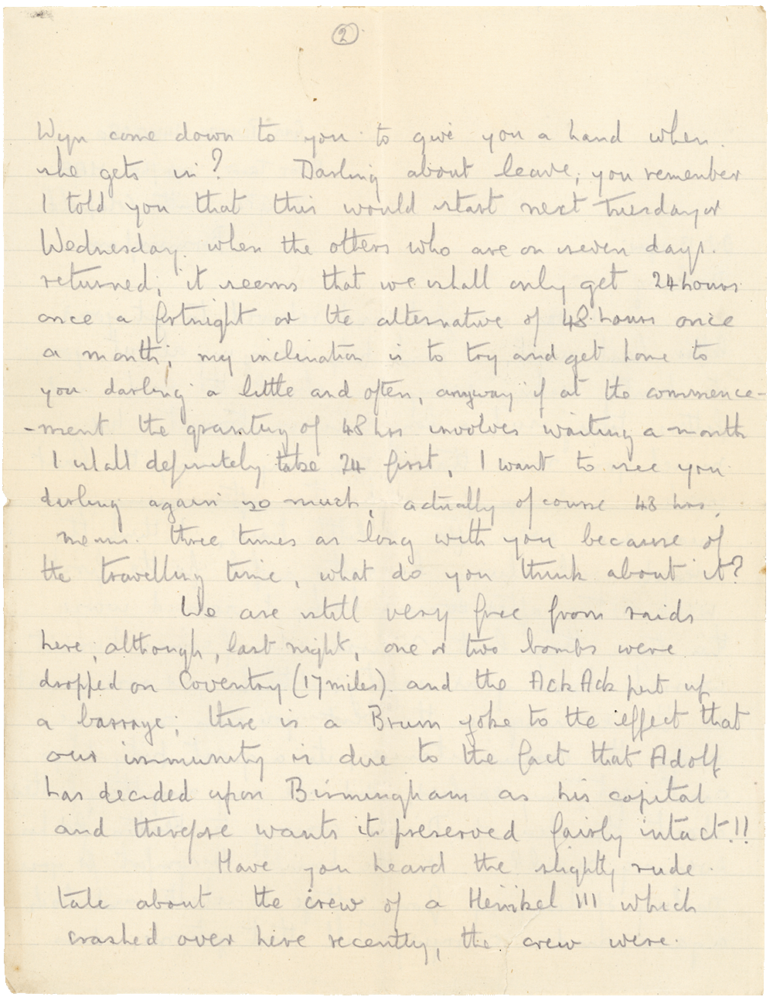 2
Wyn come down to you to give you a hand when
she gets in? Darling about leave, you remember
I told you that this would start next Tuesday or
Wednesday. when the others who are on seven days.
returned, it seems that we shall only get 24 hours
once a fortnight or the alternative of 48 hours once
a month; my inclination is to try and get home to
you darling a little and often, anyway if at the commence-
-ment the granting of 48 hrs involves waiting a month
I shall definitely take 24 first, I want to see you
darling again so much, actually of course 48 hrs,
means three times as long with you because of
the travelling time, what do you think about it?
We are still very free from raids
here, although, last night, one or two bombs were
dropped on Coventry (17 miles). and the Ack Ack put up
a barrage; there is a Brum joke to the effect that
our immunity is due to the fact that Adolf
has decided upon Birmingham as his capital
and therefore wants it preserved fairly intact!!
Have you heard the slightly rude
tale about the crew of a Heinkel 111 which
crashed over here recently, the crew were.